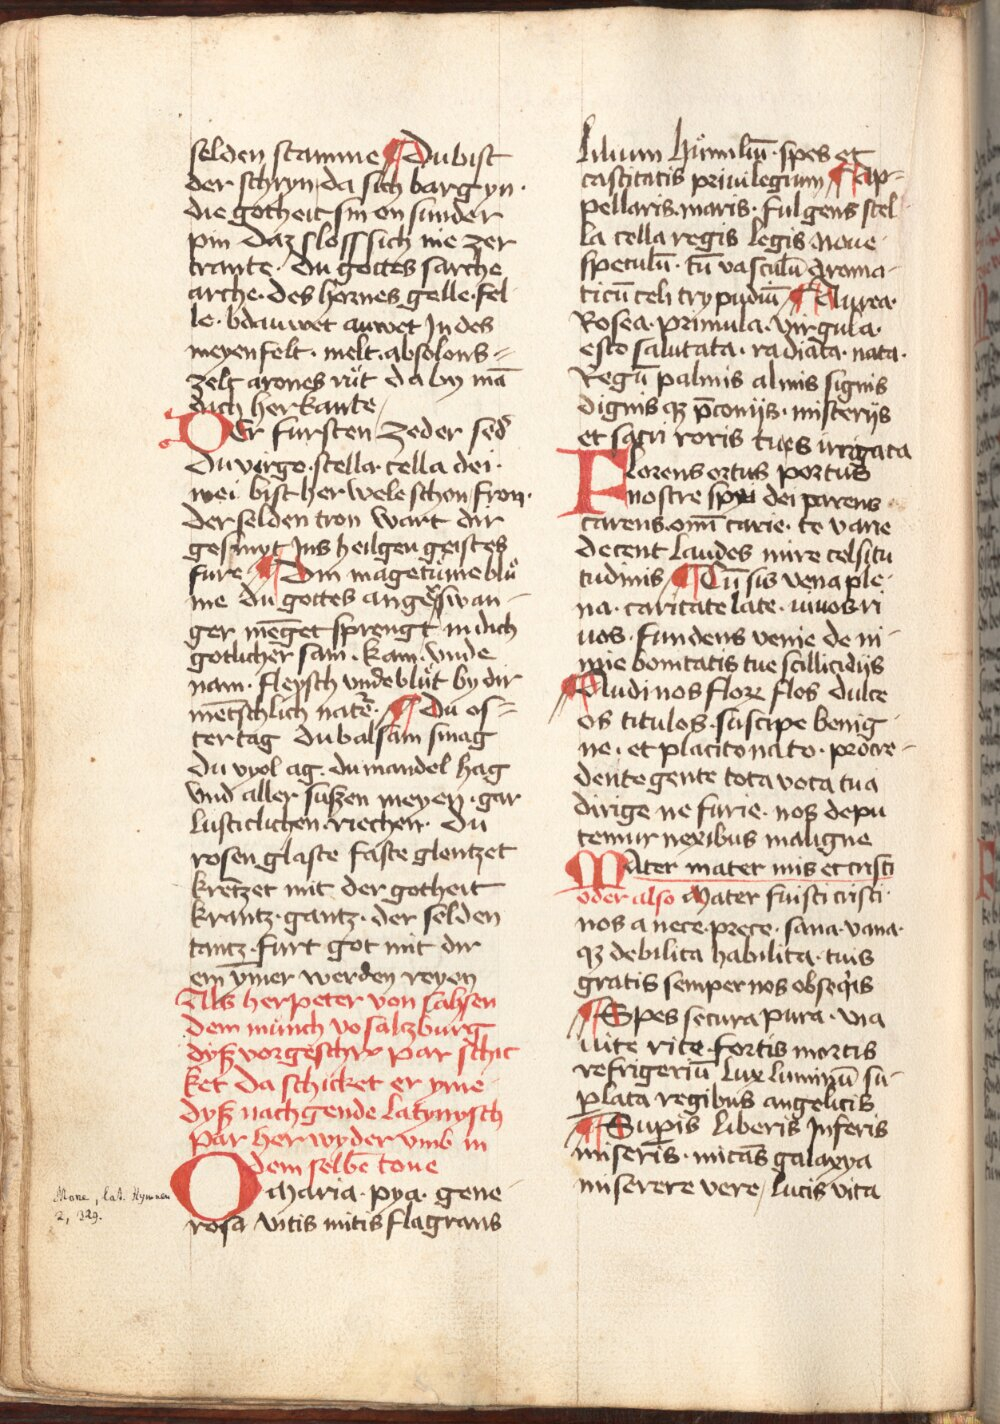 selden stamme Du bist
der schryn da sich barg yn ·
die gotheit sin on sunder
pin daz sloss sich nie zer
trante · du gottes sarche
arche · des hornes gelle · fel
le · bdauwet auwet In des
meyen felt · melt · absolons =
zelt arones růt da by mā
dich herkante
DEr fursten zeder sed
Du virgo · stella · cella dei ·
mei bist her wele schon fron ·
der selden tron wart dir
gesmyt Ins heilgen geistes
fure Din magetůme blů
me du gottes anger swan -
ger menget sprengt in dich
gotlicher sam · kam · vnde
nam · fleysch vnde blůt by dir
metschlich nature · Du os =
tertag du balsam smag
du vyol ag · du mandel hag
vnd aller sußen meyen · gar
lusticlichen · riechen · Du
rosen glaste faste glentzet
kretzet mit der gotheit
krantz · gantz · der selden
tantz · furt got mit dir
ein ymer werden reyen
Als her peter von sachsen
dem münch vo salczburg
dyß vorgeschrv par schic
ket da schicket er yme
dyß nachgende latynysch
par her wyder vmb in
dem selbē tone
O Maria · pya · gene -
rosa vitis mitis flagrans
Mone, lat. Hymnen
2, 329.
Lilium hůmiliū · spes et
castitatis priuilegium Ap =
pellaris · maris · fulgens stel
la cella regis legis noue ·
speculū · tū vasculū aroma -
ticū celi trypudiū Aurea ·
Rosea · primula · virgula ·
esto salutata · radiata · nata ·
Regū palmis almis signis
dignis qz p̄conijs · misterijs
et sacri roris tues irrigata
Florens ortus portus
nostre spei dei parens
carens · omī carie · te varie
decent laudes mire celsitu
tudinis Cū sis vena ple -
na · caritate late · viuos ri
uos · fundens venie de ni -
mie bonitatis tue scillicidijs
Audi nos flore flos dulce
os titulos · suscipe benig -
ne · et placito nato · procre -
dente gente tota vota tua
dirige ne furie · nos depu
temur nexibus maligne
MAter mater mis et cristi
oder also Mater fuisti cristi ·
nos a nece · prece · sana · vana ·
qz debilita habilita · tuis
gratis semper nos obseqis
Spes secura pura · via
uite rite · fortis mortis
refrigeriū lux luminū su -
plata regibus angelicis
Supis liberis Inferis
miseris · micās galaxya
miserere vere / lucis vita